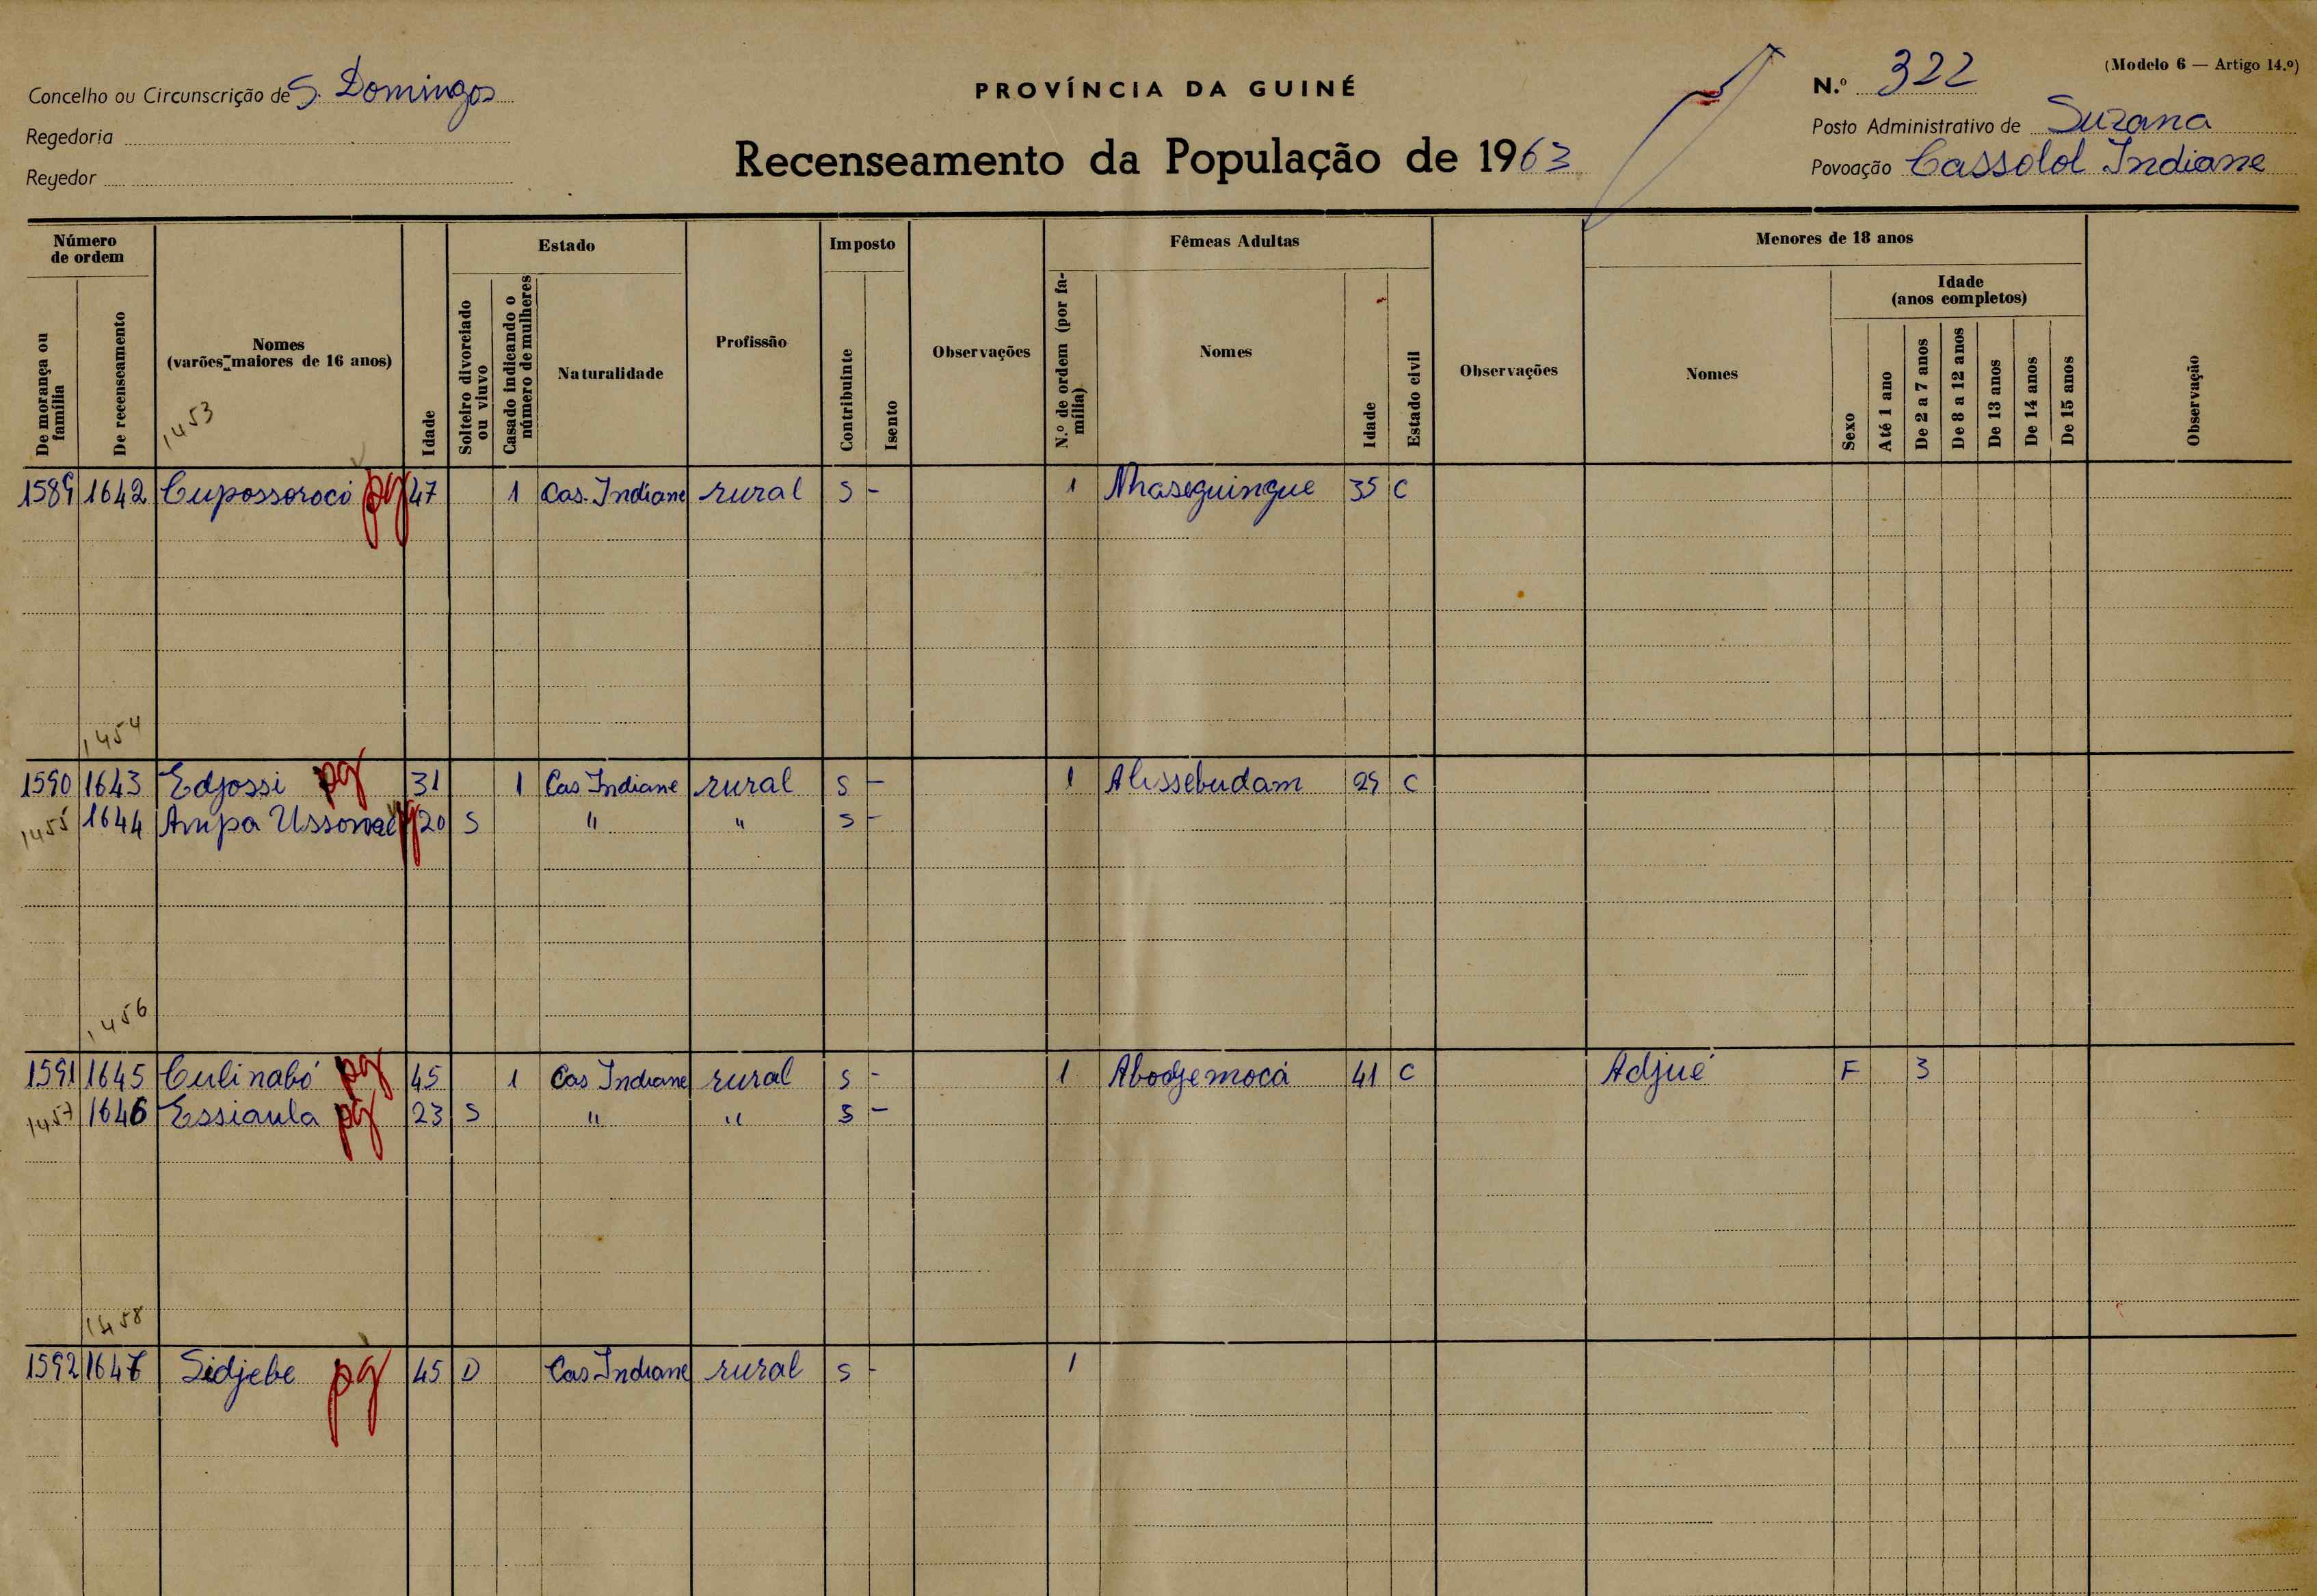 Concelho ou Circunscrição de S. Domingos
Regedoria
Regedor
PROVÍNCIA DA GUINÉ
Recenseamento da População de 1963
(Modelo 6 — Artigo 14.º)
N.º 322
Posto Administrativo de Suzana
Povoação Cassolol Indiane
Número de ordem
De morança ou família
De recenseamento
Nomes (varões maiores de 16 anos)
1453
Idade
Estado
Solteiro divorciado ou viuvo
Casado indicando o número de mulheres
Naturalidade
Profissão
Imposto
Contribuinte
Isento
Observações
Fêmeas Adultas
N.º de ordem (por família)
Nomes
Idade
Estado civil
Observações
Menores de 18 anos
Nomes
Sexo
Idade (anos completos)
Até 1 ano
De 2 a 7 anos
De 8 a 12 anos
De 13 anos
De 14 anos
De 15 anos
Observação
1589 1642 Cupossorocó pg 47 1 Cas. Indiane rural S - 1 Nhaseguingue 35 C
1454
1590 1643 Edjossi pg 31 1 Cas Indiane rural S - 1 Alissebudam 29 C
1455 1644 Ampa 20 S " " S -
1456
1591 1645 Culinabó pg 45 1 Cas Indiane rural S - 1 Abodjemocá 41 C Adjué F 3
1457 1646 Essiaula pg 23 S " " S -
1458
1592 1647 Sidjebe pg 45 D Cas Indiane rural S - 1